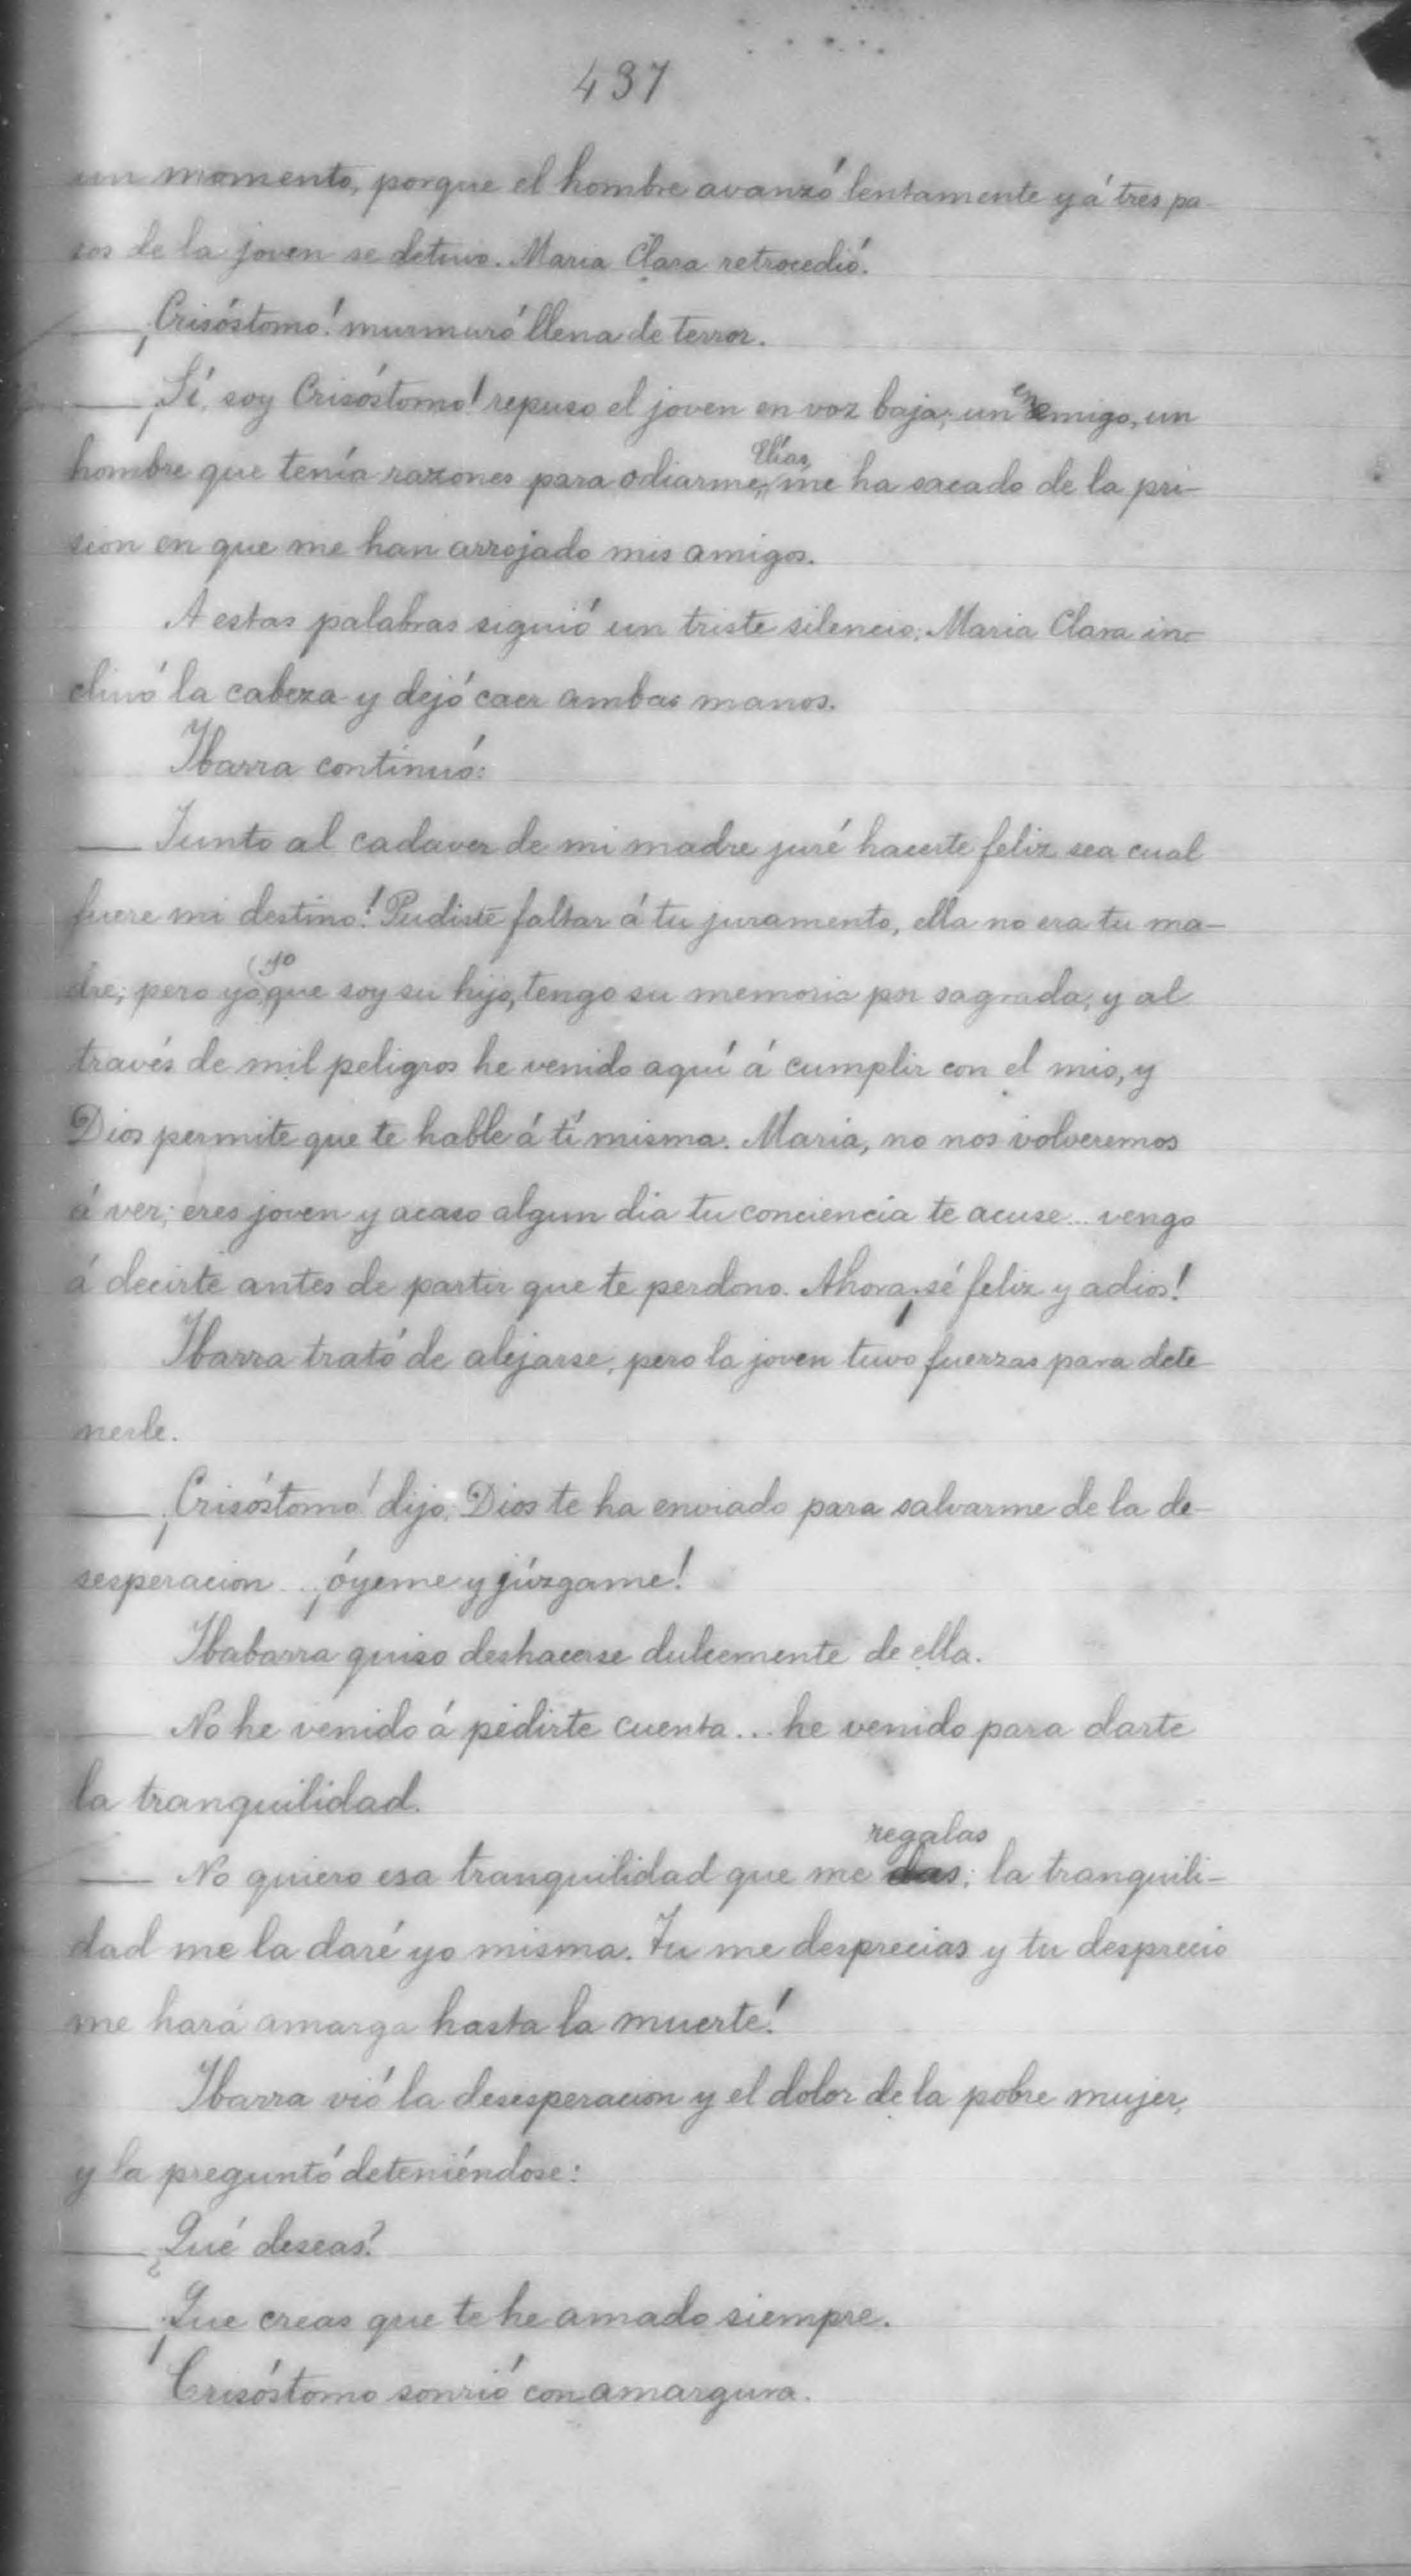 437
un momento, porque el hombre avanzó lentamente y á tres pa-
sos de la joven se detuvo. Maria Clara retrocedió.
— ¡Crisóstomo! murmuró llena de terror.
— ¡Sí, soy Crisóstomo! repuso el joven en voz baja; un enemigo, un
hombre que tenía razones para odiarme, Elías, me ha sacado de la pri-
sion en que me han arrojado mis amigos.
A estas palabras siguió un triste silencio; Maria Clara in-
clinó la cabeza y dejó caer ambas manos.
Ibarra continuó:
— Junto al cadaver de mi madre juré hacerte feliz sea cual
fuere mi destino! Pudiste faltar á tu juramento, ella no era tu ma-
dre; pero yo, yo que soy su hijo, tengo su memoria por sagrada, y al
través de mil peligros he venido aquí á cumplir con el mio, y
Dios permite que te hable á tí misma. Maria, no nos volveremos
á ver; eres joven y acaso algun dia tu conciencia te acuse... vengo
á decirte antes de partir que te perdono. Ahora ¡sé feliz y adios!
Ibarra trató de alejarse, pero la joven tuvo fuerzas para dete-
nerle.
— ¡Crisóstomo! dijo; Dios te ha enviado para salvarme de la de-
sesperacion... ¡óyeme y júzgame!
Ibabarra quiso deshacerse dulcemente de ella.
— No he venido á pedirte cuenta... he venido para darte
la tranquilidad.
— No quiero esa tranquilidad que me das regalas; la tranquili-
dad me la daré yo misma. Tu me desprecias y tu desprecio
me hará amarga hasta la muerte!
Ibarra vió la desesperacion y el dolor de la pobre mujer,
y la preguntó deteniéndose:
— ¿Qué deseas?
— ¡Que creas que te he amado siempre.
Crisóstomo sonrió con amargura.